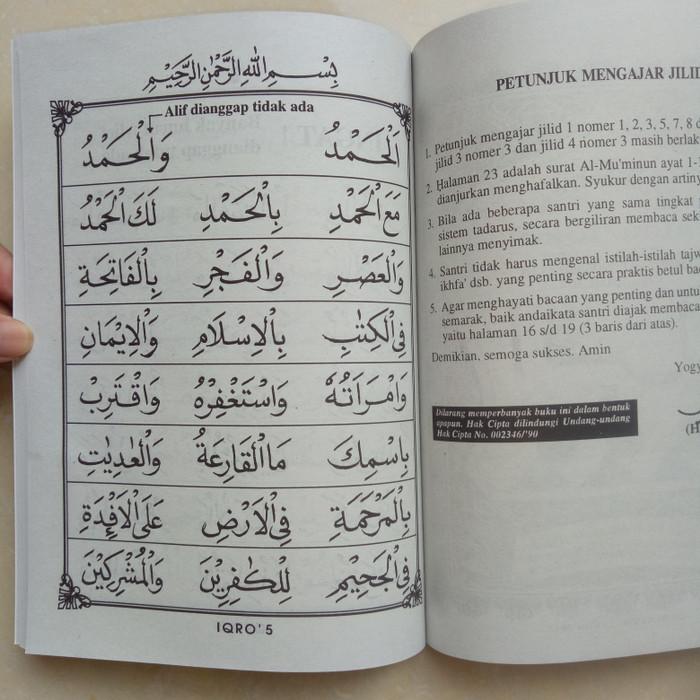 بِسْمِ اللهِ الرَّحْمٰنِ الرَّحِيْمِ
Alif dianggap tidak ada
اَلْحَمْدُ وَالْحَمْدُ
مَعَ الْحَمْدِ بِالْحَمْدِ لَكَ الْحَمْدُ
وَالْعَصْرِ وَالْفَجْرِ بِالْفَاتِحَةِ
فِى الْكِتٰبِ بِالْاِسْلَامِ وَالْاِيْمَانِ
وَامْرَاَتُهُ وَاسْتَغْفِرْهُ وَاقْتَرِبْ
بِاسْمِكَ مَاالْقَارِعَةُ وَالْعٰدِيٰتِ
بِالْمَرْحَمَةِ فِى الْاَرْضِ عَلَى الْاَفْئِدَةِ
فِى الْجَحِيْمِ لِلْكٰفِرِيْنَ وَالْمُشْرِكِيْنَ
IQRO' 5
PETUNJUK MENGAJAR
1. Petunjuk mengajar jilid 1 nomer 1, 2, 3, 5, 7, 8
jilid 3 nomer 3 dan jilid 4 nomer 3 masih
2. Halaman 23 adalah surat Al-Mu'minun ayat
dianjurkan menghafalkan. Syukur dengan
3. Bila ada beberapa santri yang sama tingkat
sistem tadarus, secara bergiliran membaca
lainnya menyimak.
4. Santri tidak harus mengenal istilah-istilah
ikhfa' dsb. yang penting secara praktis betul
5. Agar menghayati bacaan yang penting dan
semarak, baik andaikata santri diajak
yaitu halaman 16 s/d 19 (3 baris dari atas).
Demikian, semoga sukses. Amin
Dilarang memperbanyak buku ini dalam bentuk
apapun. Hak Cipta dilindungi Undang-undang
Hak Cipta No. 002346/'90